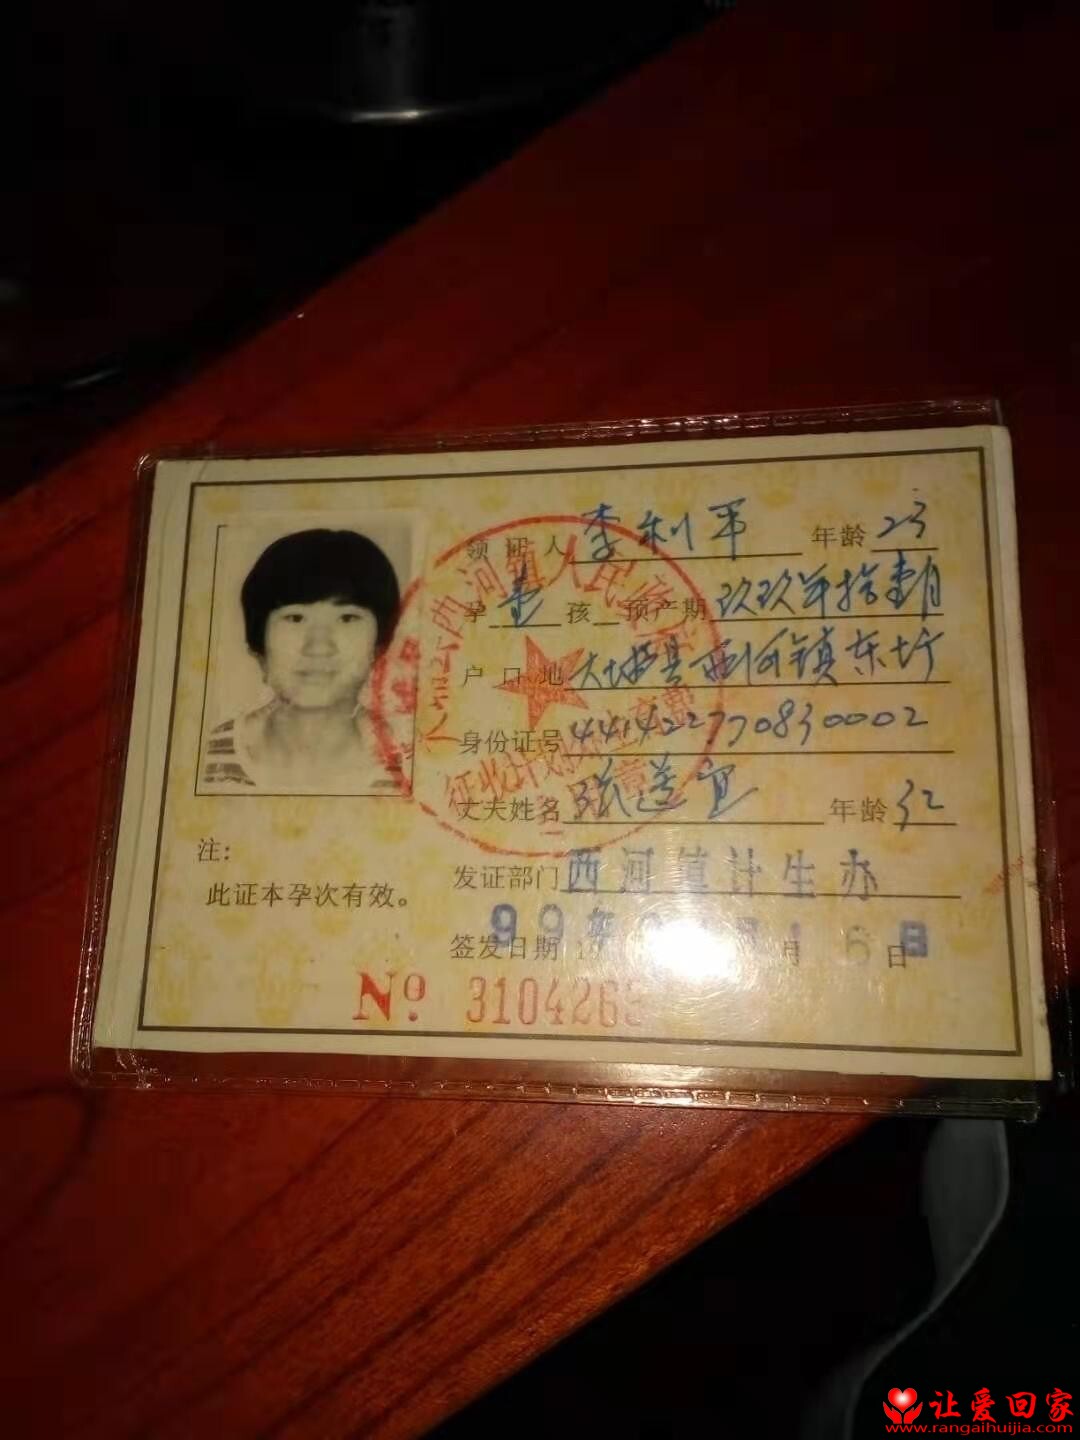 领证人 李利平 年龄 23
孕 壹 孩 预产期 玖玖年拾壹月
户口地 大埔县西河镇东圩
身份证号 441422770830002
丈夫姓名 张送宜 年龄 32
注:
此证本孕次有效。
发证部门 西河镇计生办
签发日期 99年 月 6日
No. 310426
西河镇人民
让爱回家
www.rangaihuijia.com